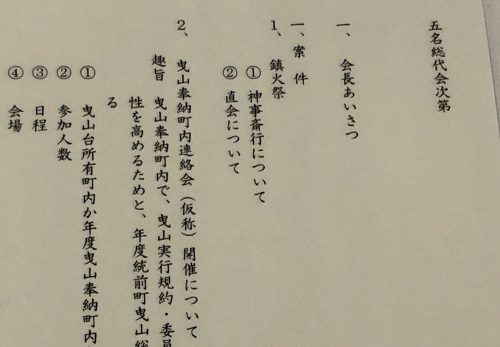 五名総代会次第
一、会長あいさつ
一、案件
1、鎮火祭
① 神事斎行について
② 直会について
2、曳山奉納町内連絡会（仮称）開催について
趣旨 曳山奉納町内で、曳山実行規約・委員
性を高めるためと、年度統前町曳山総
る
① 曳山台所有町内か年度曳山奉納町内
② 参加人数
③ 日程
④ 会場